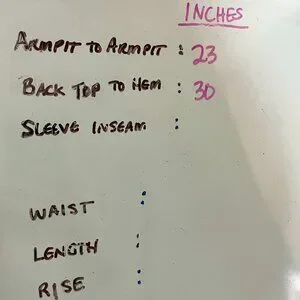 INCHES
ARMPIT TO ARMPIT : 23
BACK TOP TO HEM : 30
SLEEVE INSEAM :
WAIST :
LENGTH :
RISE :